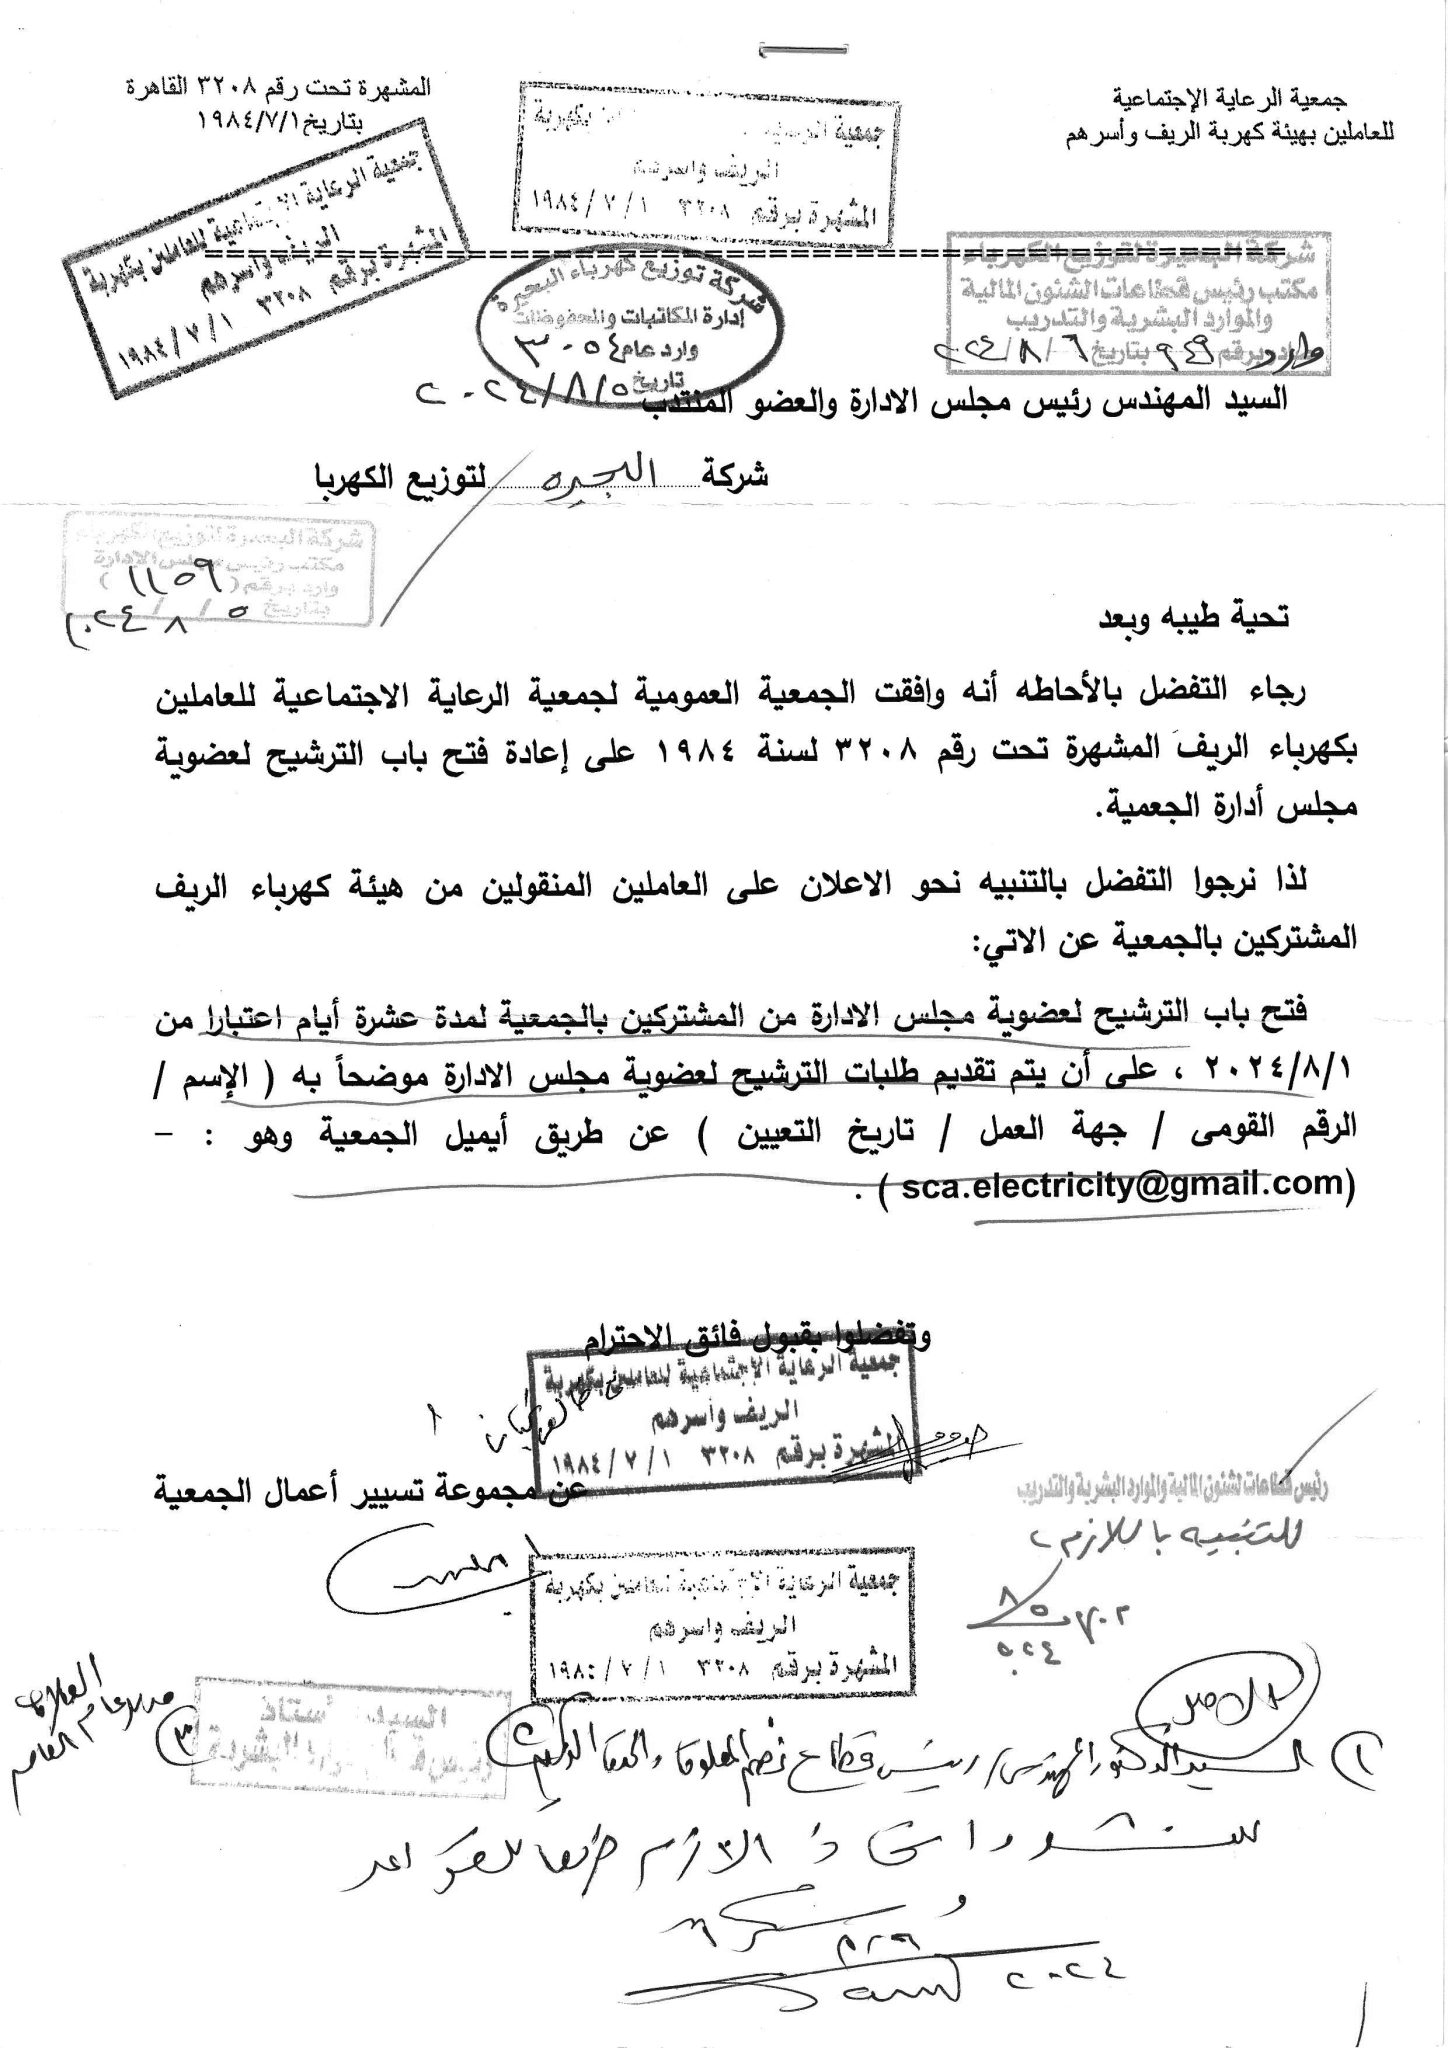 جمعية الرعاية الإجتماعية
للعاملين بهيئة كهربة الريف وأسرهم
المشهرة تحت رقم ٣٢٠٨ القاهرة
بتاريخ ١٩٨٤/٧/١
جمعية الرعاية الإجتماعية للعاملين بكهربة
الريف واسرهم
المشهرة برقم ٣٢٠٨ ١٩٨٤/٧/١
جمعية بكهربة
الريف واسرهم
المشهرة برقم ٣٢٠٨ ١٩٨٤/٧/١
================================================
شركة توزيع كهرباء البحيرة
إدارة المكاتبات والمحفوظات
وارد عام ٣٠٥٤
تاريخ ٢٠٢٤/٨/٥
شركة البحيرة لتوزيع الكهرباء
مكتب رئيس قطاعات الشئون المالية
والموارد البشرية والتدريب
وارد برقم ٩٤٩ بتاريخ ٢٠٢٤/٨/٦
السيد المهندس رئيس مجلس الادارة والعضو المنتدب
شركة البحيره لتوزيع الكهربا
شركة البحيرة لتوزيع الكهرباء
مكتب رئيس مجلس الادارة
وارد برقم ( ١١٥٩ )
بتاريخ ٥ / ٨ / ٢٠٢٤
تحية طيبه وبعد
رجاء التفضل بالأحاطه أنه وافقت الجمعية العمومية لجمعية الرعاية الاجتماعية للعاملين
بكهرباء الريف المشهرة تحت رقم ٣٢٠٨ لسنة ١٩٨٤ على إعادة فتح باب الترشيح لعضوية
مجلس أدارة الجعمية.
لذا نرجوا التفضل بالتنبيه نحو الاعلان على العاملين المنقولين من هيئة كهرباء الريف
المشتركين بالجمعية عن الاتي:
فتح باب الترشيح لعضوية مجلس الادارة من المشتركين بالجمعية لمدة عشرة أيام اعتبارا من
٢٠٢٤/٨/١ ، على أن يتم تقديم طلبات الترشيح لعضوية مجلس الادارة موضحاً به ( الإسم /
الرقم القومى / جهة العمل / تاريخ التعيين ) عن طريق أيميل الجمعية وهو : –
(sca.electricity@gmail.com ) .
وتفضلوا بقبول فائق الاحترام
جمعية الرعاية الإجتماعية للعاملين بكهربة
الريف واسرهم
المشهرة برقم ٣٢٠٨ ١٩٨٤/٧/١
عن مجموعة تسيير أعمال الجمعية
رئيس قطاعات الشئون المالية والموارد البشرية والتدريب
للتنبيه باللازم
جمعية الرعاية الإجتماعية للعاملين بكهربة
الريف واسرهم
المشهرة برقم ٣٢٠٨ ١٩٨٤/٧/١
مدير عام العلاقات العامه
١) السيد الدكتور المهندس/ رئيس قطاع نظم المعلومات
للنشر واتخاذ اللازم طبقا للقواعد
٢٠٢٤